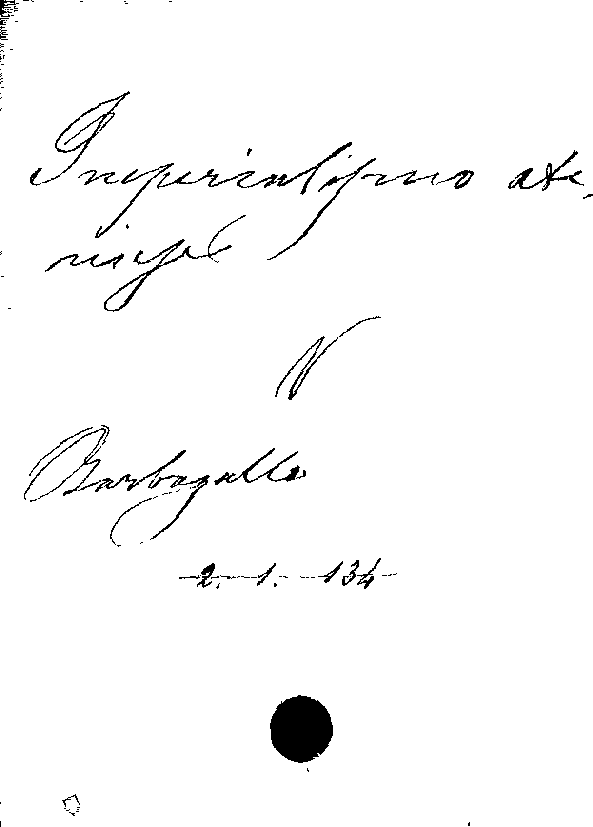 Imperialismo ate-
niese
V
Barbagallo
2. 1. 134